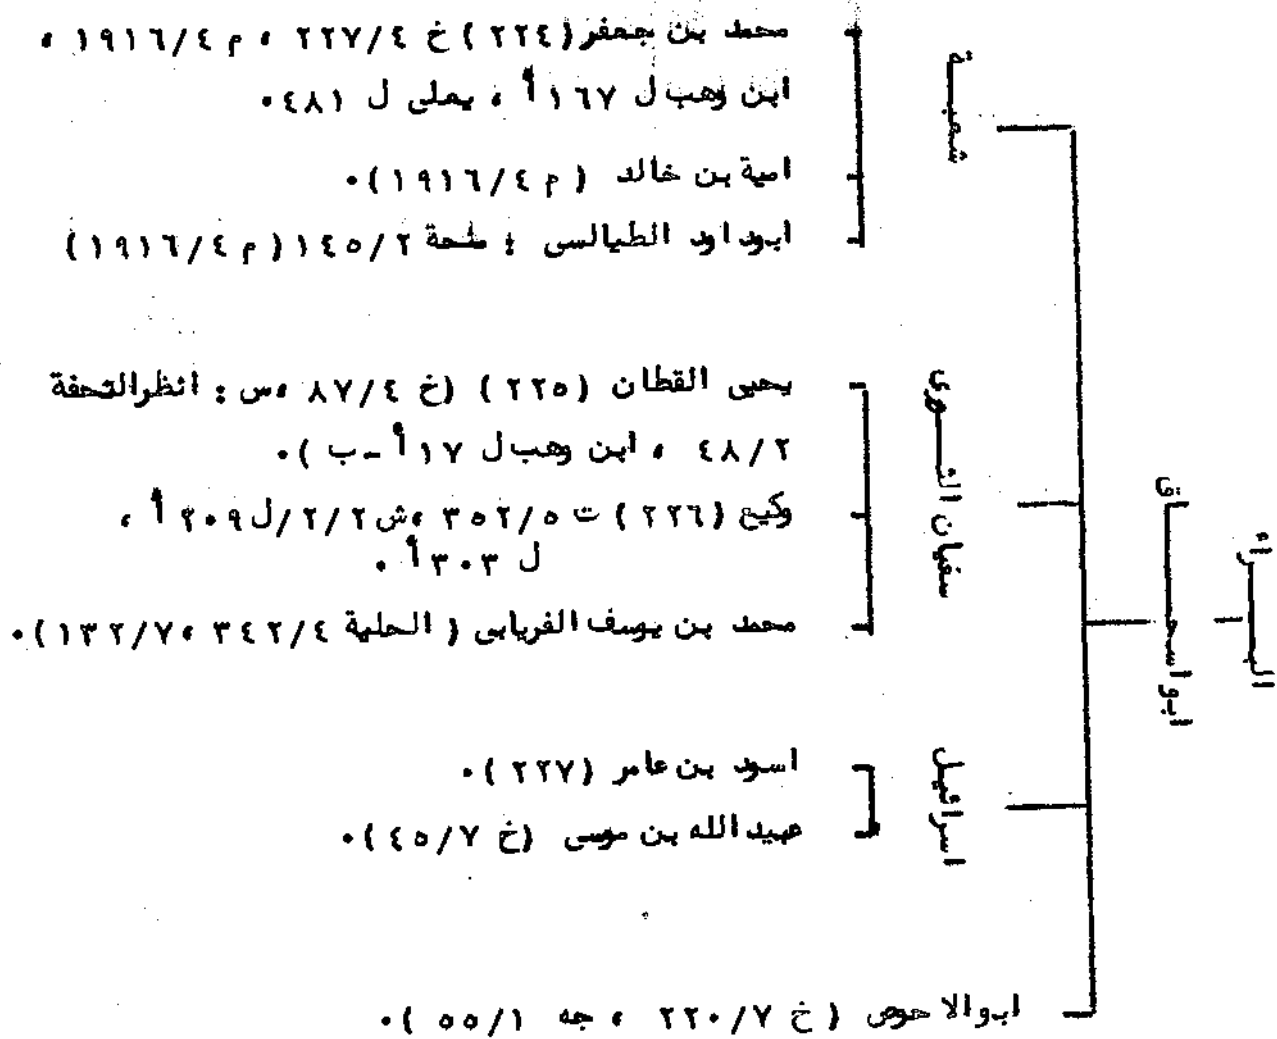 البـــراء
ابو اسحـــاق
شعبـــة
محمد بن جعفر (٢٢٤) خ ٢٢٧/٤ ، م ١٩١٦/٤ ،
ابن وهب ل ١٦٧أ ، يعلى ل ٤٨١ .
امية بن خالد ( م ١٩١٦/٤ ) .
ابو داود الطيالسى : طحة ١٤٥/٢ ( م ١٩١٦/٤ )
سفيان الثـــورى
يحيى القطان (٢٢٥) (خ ٨٧/٤ ،س : انظر التحفة
٤٨/٢ ، ابن وهب ل ١٧أ - ب ) .
وكيع (٢٢٦) ت ٣٥٢/٥ ،ش ٢/٢/ل ٢٠٩أ ،
ل ٣٠٣أ .
محمد بن يوسف الفريابى ( الحلية ٣٤٢/٤ ، ١٣٢/٧ ) .
اسرائيل
اسود بن عامر (٢٢٧) .
عبيد الله بن موسى (خ ٤٥/٧ ) .
ابو الاحوص ( خ ٢٢٠/٧ ، جه ٥٥/١ ) .